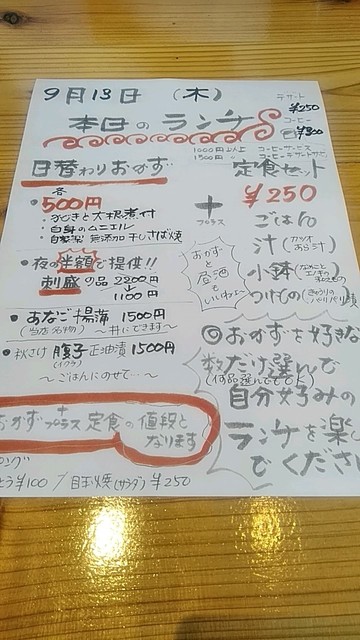 9月13日 (木)
デザート ¥250
コーヒー ¥300
本日のランチ
1000円以上 コーヒーサービス
1500円 〃 コーヒーデザートサービス
日替わりおかず
各500円
・ひじきと大根煮付
・白身のムニエル
・自家製 無添加干しさば焼
定食セット
¥250
＋
プラス
ごはん
汁
小鉢
つけもの
おかずと昼酒もいいね
・夜の半額で提供!!
刺盛の品 2200円
↓
1100円
・あなご蒲
(当店名物) 1500円
〜丼にできます〜
・秋さけ 腹子 正油漬 1500円
(イクラ)
〜ごはんにのせて…〜
◎おかずを好きな
数だけ選んで
(何品選んでもOK)
自分好みの
ランチを楽し
んでください
おかずプラス定食の値段と
なります
¥100 / 目玉焼(サラダ) ¥250